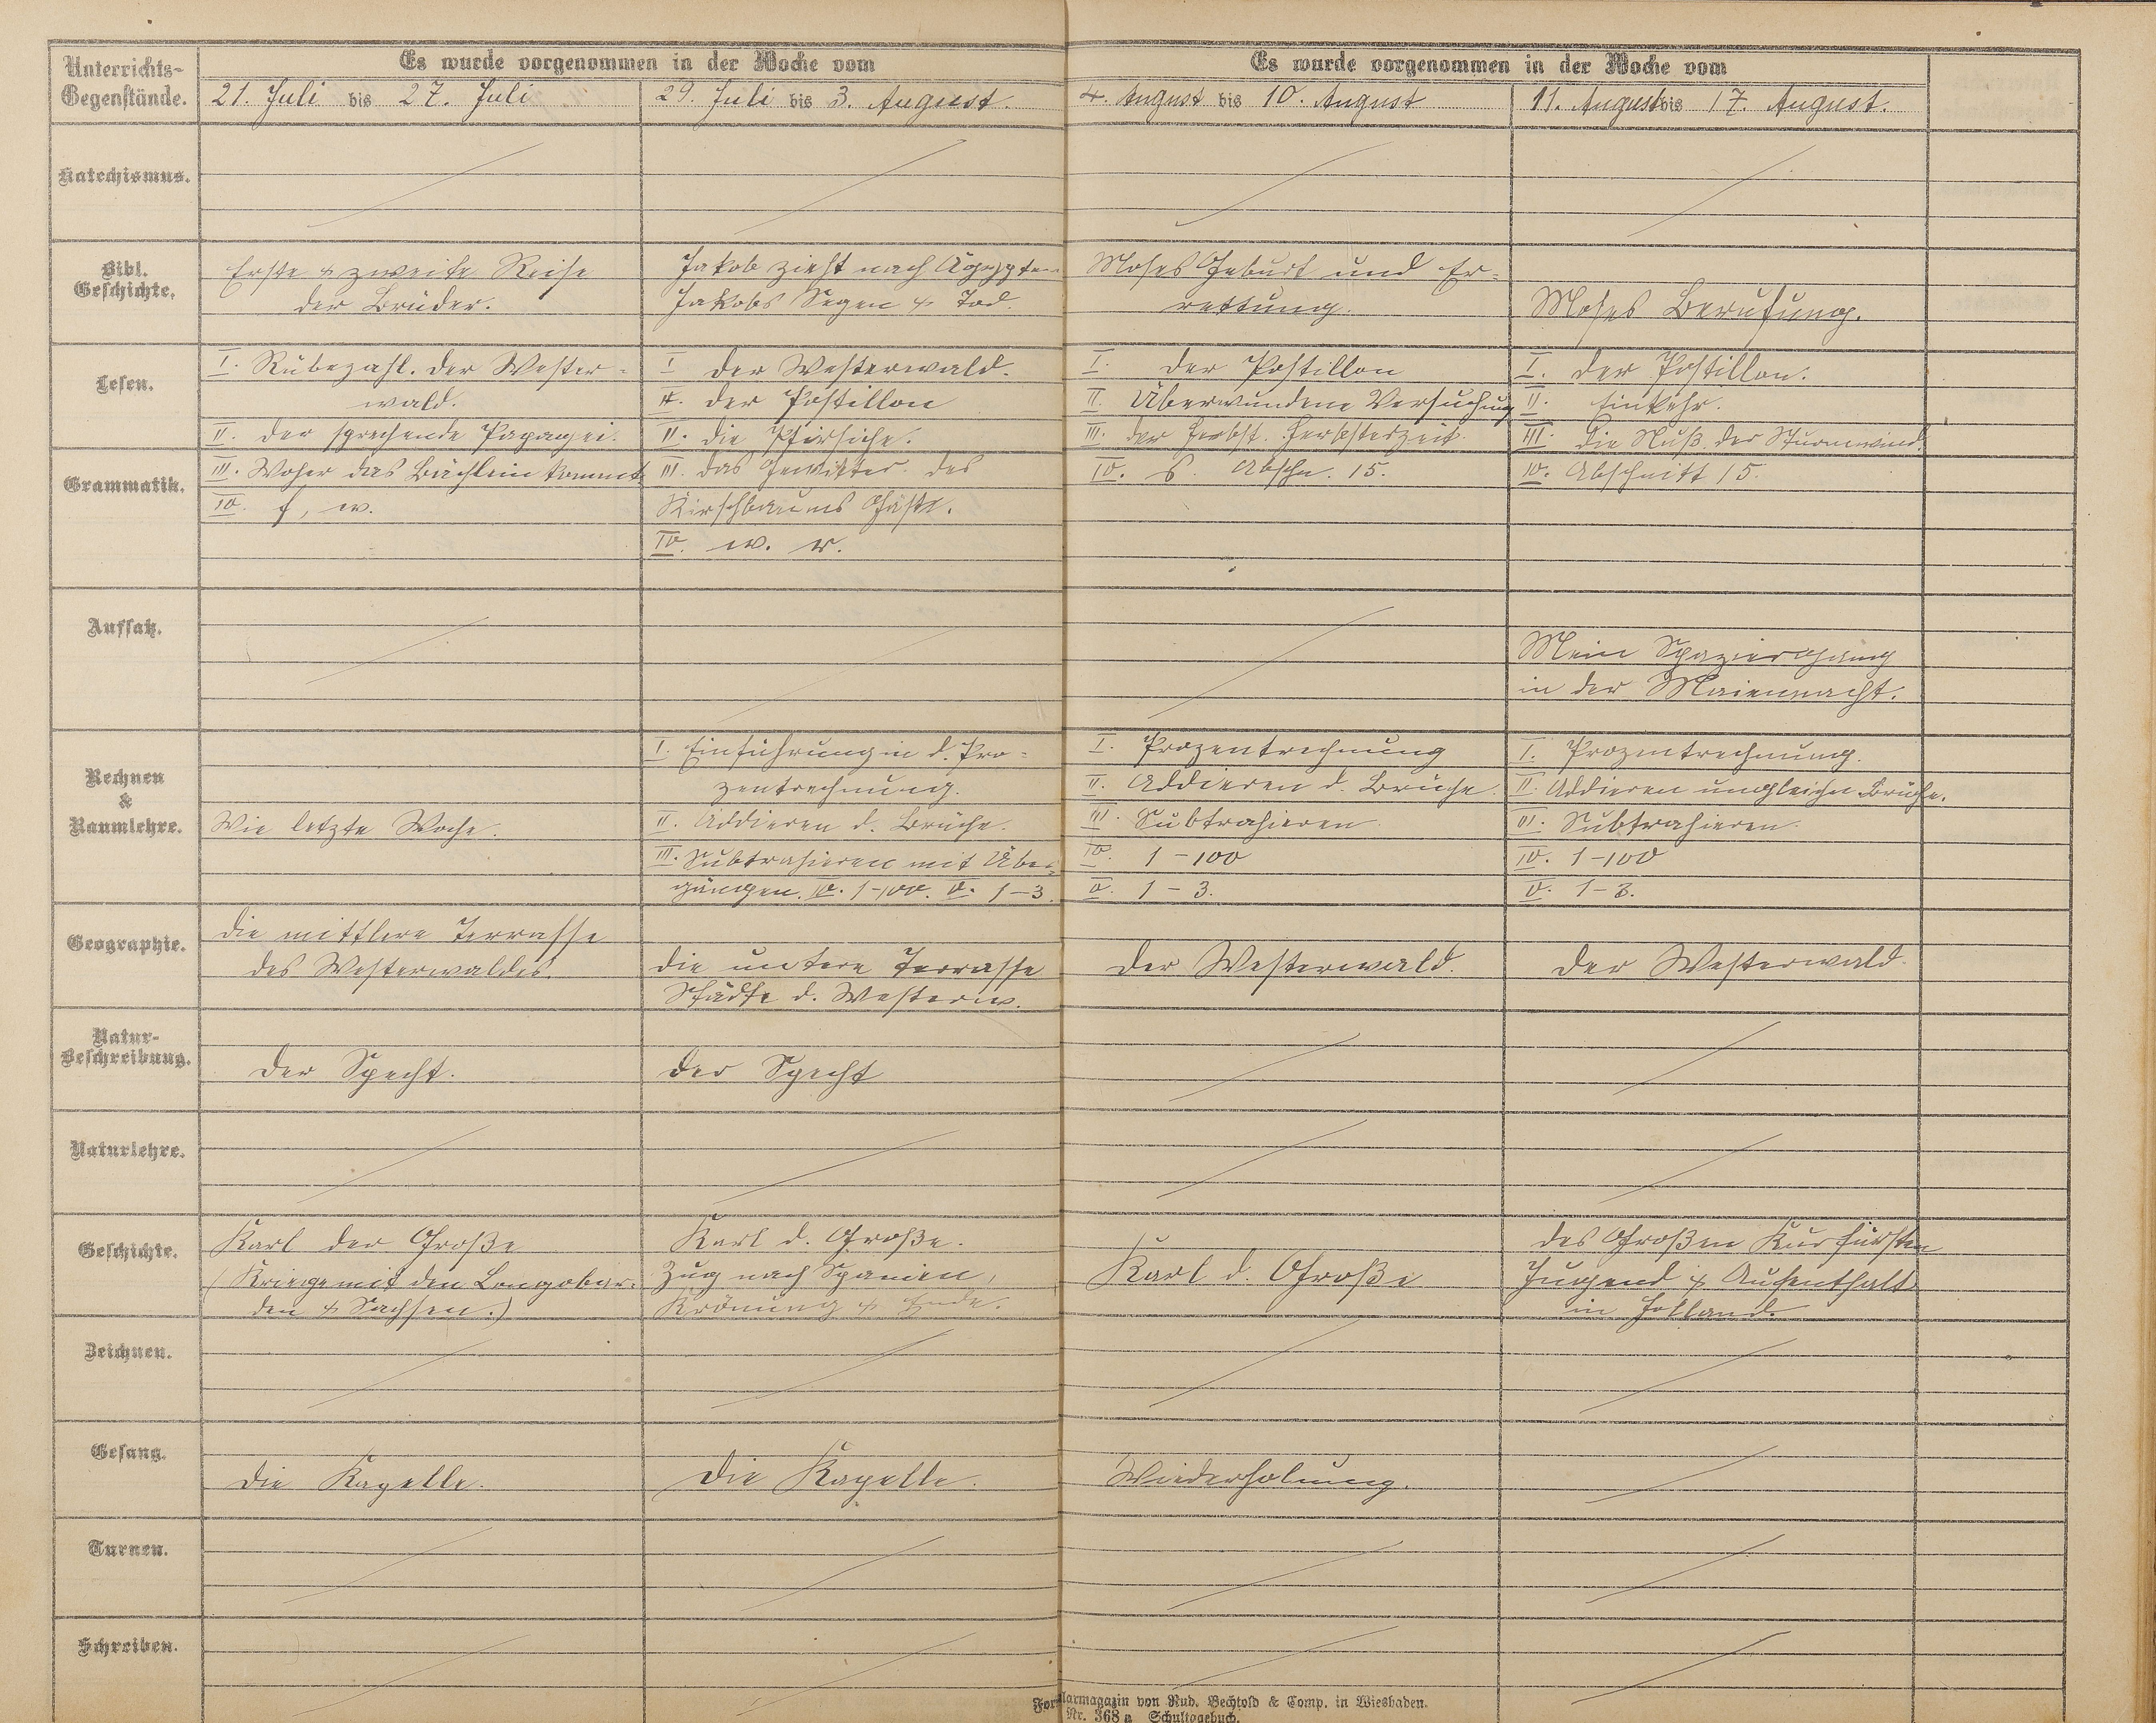 Unterrichts-
Gegenstände.
Es wurde vorgenommen in der Woche vom
21. Juli bis 27. Juli
29. Juli bis 3. August.
Es wurde vorgenommen in der Woche vom
4. August bis 10. August
11. August bis 17. August.
Katechismus.
Bibl.
Geschichte.
Erste & zweite Reise
der Brüder.
Jakob zieht nach Ägypten
Jakobs Segen & Tod.
Moses Geburt und Er-
rettung.
Moses Berufung.
Lesen.
Grammatik.
I. Rübezahl. Der Wester-
wald.
II. Der sprechende Papagei.
III. Woher das Bächlein kommt
IV. f, w.
I Der Westerwald.
II. Der Postillon
II. Die Pfirsiche.
III. Das Gewitter. Des
Kirschbaums Gäste.
IV. w. v.
I. Der Postillon
II. Überwundene Versuchung
III. Der Herbst. Herbsteszeit.
IV. S. Abschn. 15.
I. Der Postillon.
II. Einkehr.
III. Die Nuß. Der Sturmwind.
IV. Abschnitt 15.
Aufsatz.
Mein Spaziergang
in der Maiennacht.
Rechnen
&
Raumlehre.
Wie letzte Woche.
I. Einführung in d. Pro-
zentrechnung.
II. Addieren d. Brüche.
III. Subtrahieren mit Über-
gängen. IV. 1-100. V. 1-3.
I. Prozentrechnung
II. Addieren d. Brüche.
III. Subtrahieren.
IV. 1-100
V. 1-3.
I. Prozentrechnung.
II. Addieren ungleicher Brüche.
III. Subtrahieren.
IV. 1-100
V. 1-3.
Geographie.
Die mittlere Terrasse
des Westerwaldes.
Die untere Terrasse
Städte d. Westerw.
Der Westerwald.
Der Westerwald.
Natur-
Beschreibung.
Der Specht.
Der Specht
Naturlehre.
Geschichte.
Karl der Große
(Kriege mit den Longobar-
den & Sachsen.)
Karl d. Große.
Zug nach Spanien,
Krönung & Ende.
Karl d. Große
Des Großen Kurfürsten
Jugend & Aufenthalt
in Holland.
Zeichnen.
Gesang.
Die Kapelle.
Die Kapelle.
Wiederholung.
Turnen.
Schreiben.
Formularmagazin von Rud. Bechtold & Comp. in Wiesbaden.
Nr. 368 a Schultagebuch.